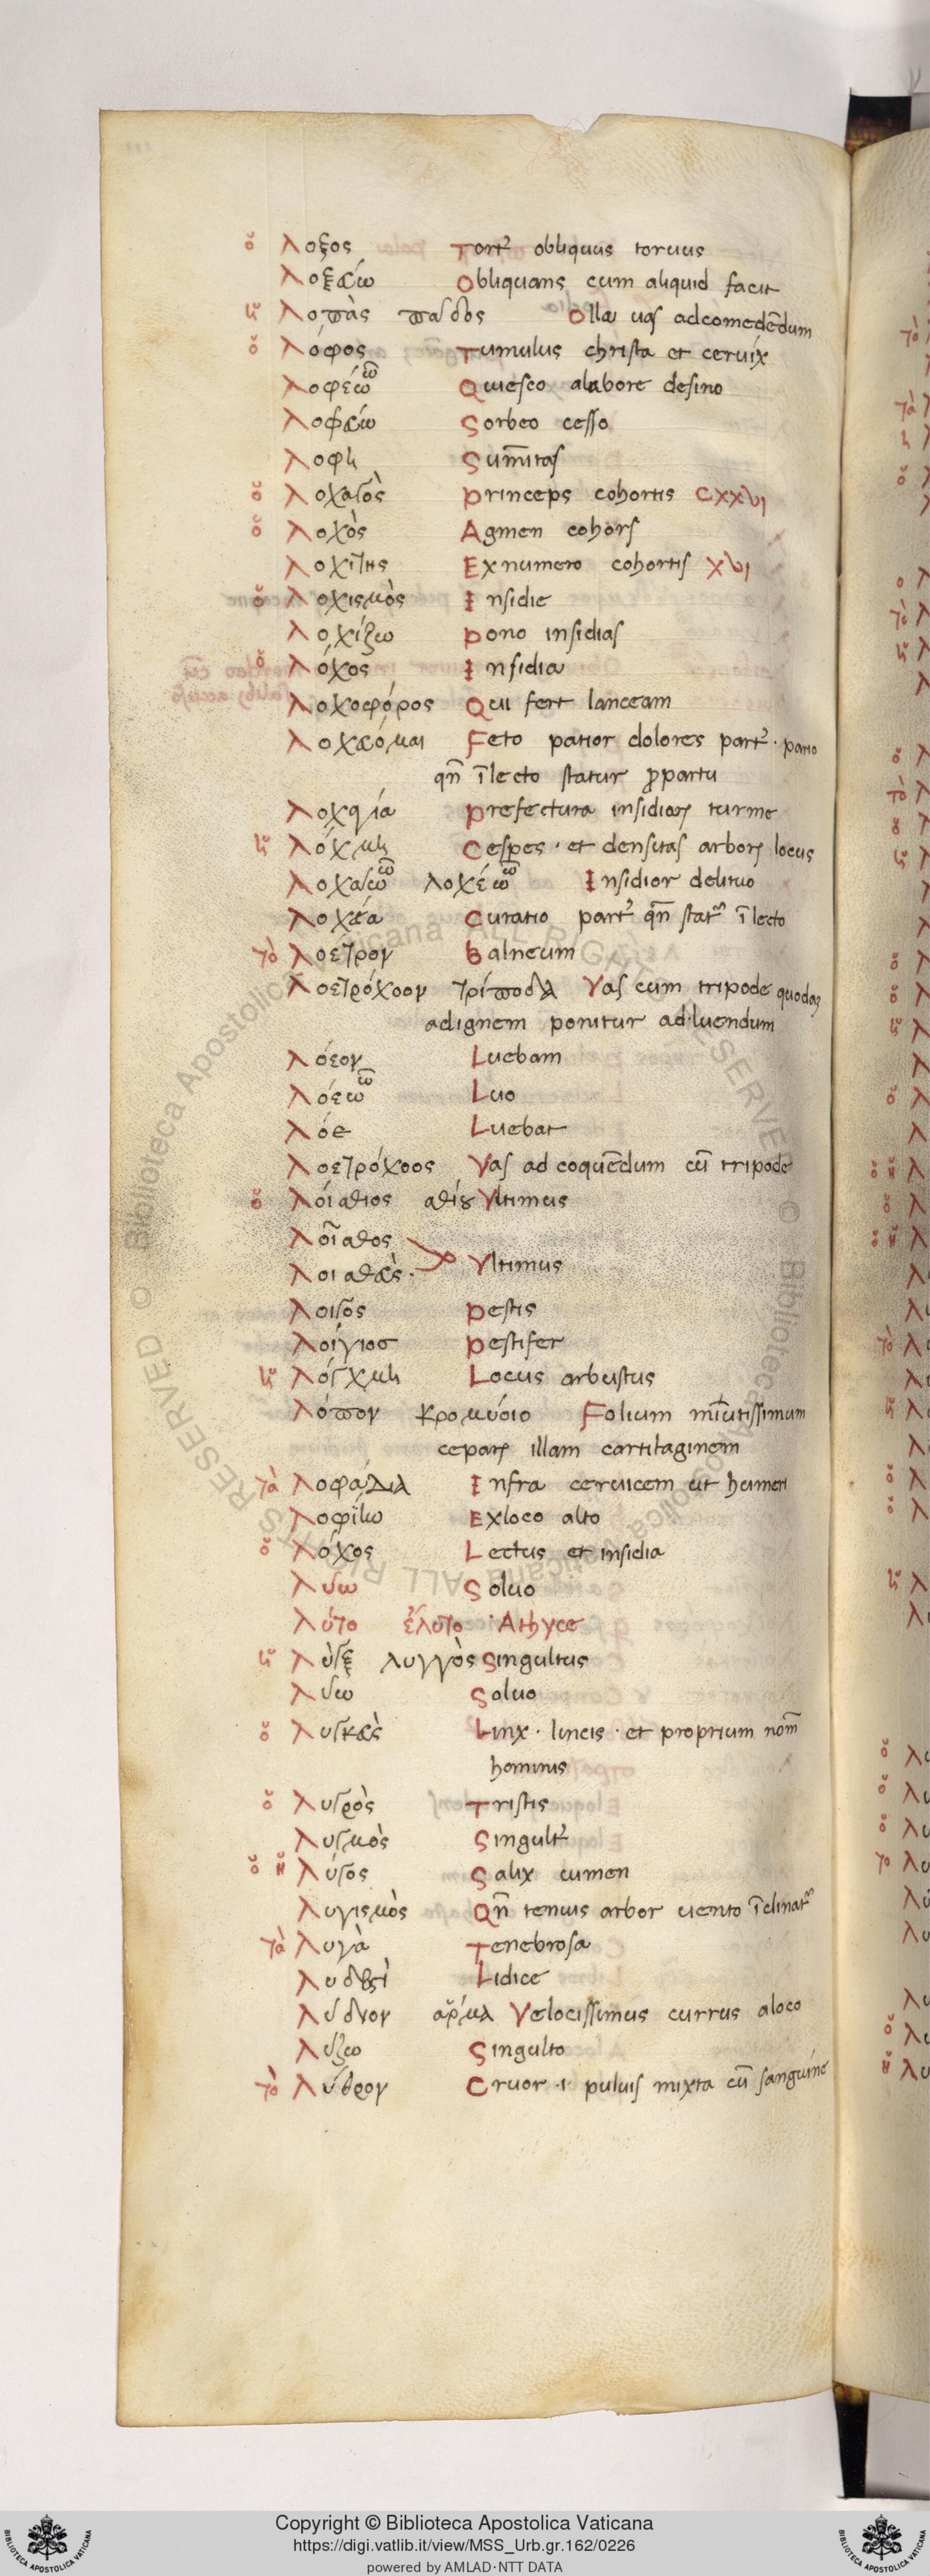 ὁ Λοξος Tortꝰ obliquus toruus
Λοξεύω Obliquans cum aliquid facit
ἡ Λοπὰς παδος Olla uas adcomedēdum
ὁ Λόφος Tumulus christa et ceruix
Λοφέω ῶ Quiesco alabore desino
Λοφάω Sorbeo cesso
Λοφη Sum̄itas
ὁ Λοχαγὸς Princeps cohortis CXXVI
ὁ Λοχὸς Agmen cohors
Λοχίτης Exnumero cohortis XVI
ὁ Λοχισμὸς Insidie
Λοχίζω Pono insidias
ὁ Λόχος Insidia
Λοχοφόρος Qui fert lanceam
Λοχεόμαι Feto patior dolores partꝰ · pario
qn̄ ī lecto statur ꝓpartu
Prefectura insidiaꝝ turme
ἡ Λόχμη Cespes · et densitas arboꝝ locus
Λοχαγῶ λοχέω ῶ Insidior delituo
Λοχεία Curatio partꝰ qn̄ statᷣ ī lecto
τὸ Λοετρον Balneum
Λοετρόχοον τρίποδα Vas cum tripode quodaȝ
adignem ponitur ad·luendum
Λόεον Luebam
Λόεω ῶ Luo
Λόε Luebat
Λοετρόχοος Vas ad coquēdum cū tripode
ὁ Λοίσθιος σθίου Vltimus
Λοῖσθος
Λοισθεὺς · Vltimus
Λοιγὸς Pestis
Λοίγιοσ Pestifer
ἡ Λόγχμη Locus arbustus
Λόπον κρομύοιο Folium mīutissimum
cepaꝝ illam cartilaginem
τὰ Λοφάδια Infra ceruicem ut humeri
Λοφίω Exloco alto
ὁ Λόχος Lectus et insidia
Λύω Soluo
Λύτο ἔλυτο Athyce
ἡ Λὺγξ λυγγὸς Singultus
Λύω Soluo
ὁ Λυγκεὺς Linx · lincis · et proprium nom̄
hominis
ὁ Λυγρὸς Tristis
Λυγμὸς Singultꝰ
ὁ ἡ Λύγος Salix uimen
Λυγισμὸς Qn̄ tenuis arbor uento īclinatᷣ
τὰ Λυγὰ Tenebrosa
Λυδιστὶ Lidice
Λύδνον ἅρμα Velocissimus currus aloco
Λύζω Singulto
τὸ Λύθρον Cruor · i puluis mixta cū sanguine
Copyright © Biblioteca Apostolica Vaticana
https://digi.vatlib.it/view/MSS_Urb.gr.162/0226
powered by AMLAD·NTT DATA